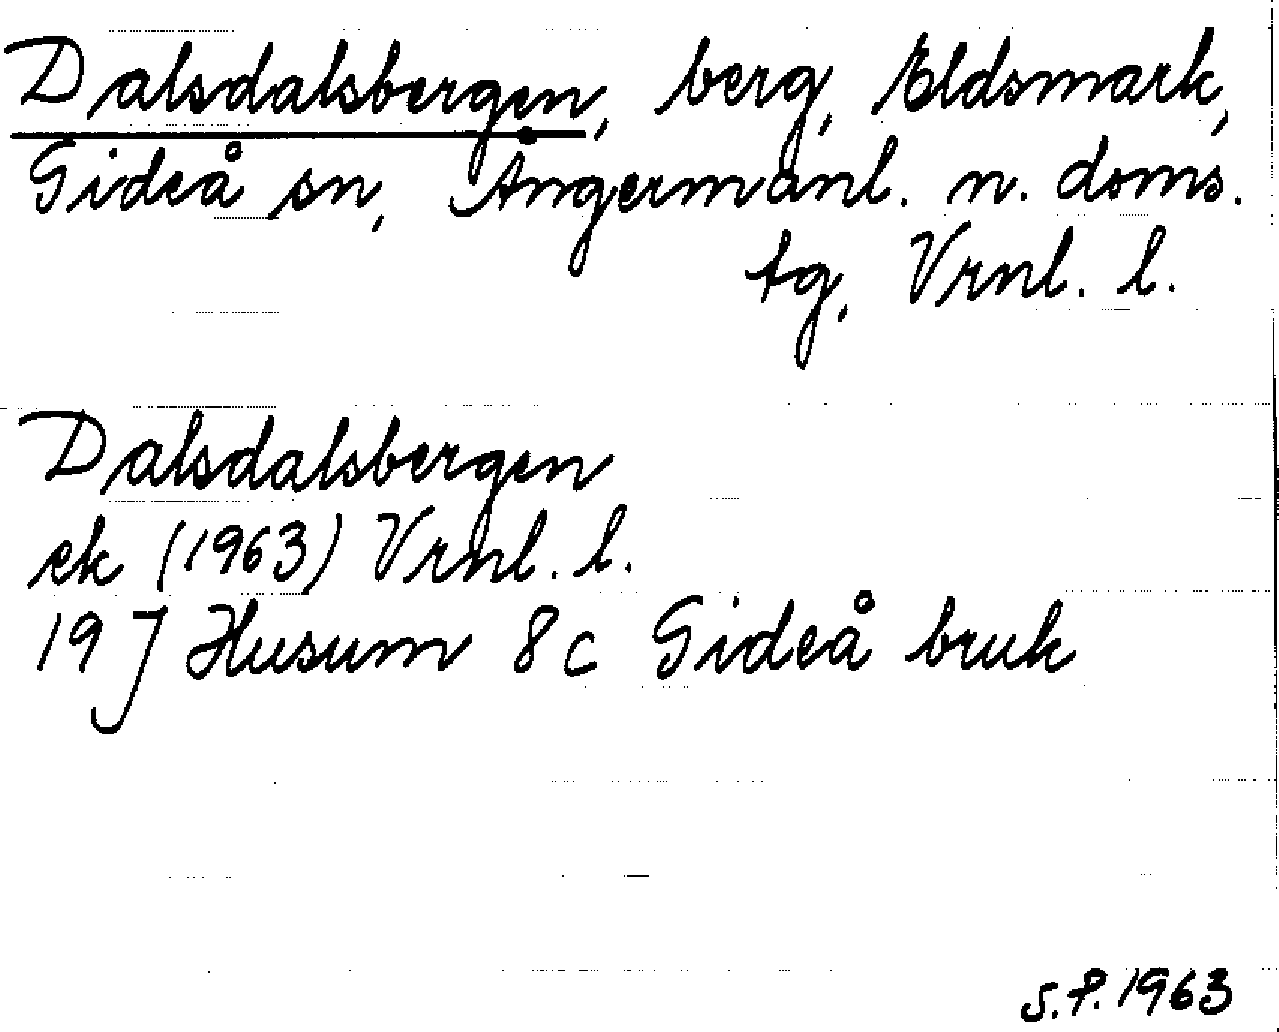 Dalsdalsbergen, berg, Eldsmark,
Gideå sn, Ångermanl. n. doms.
tg, Vrnl. l.
Dalsdalsbergen
ek (1963) Vrnl. l.
19 J Husum 8c Gideå bruk
S.P. 1963